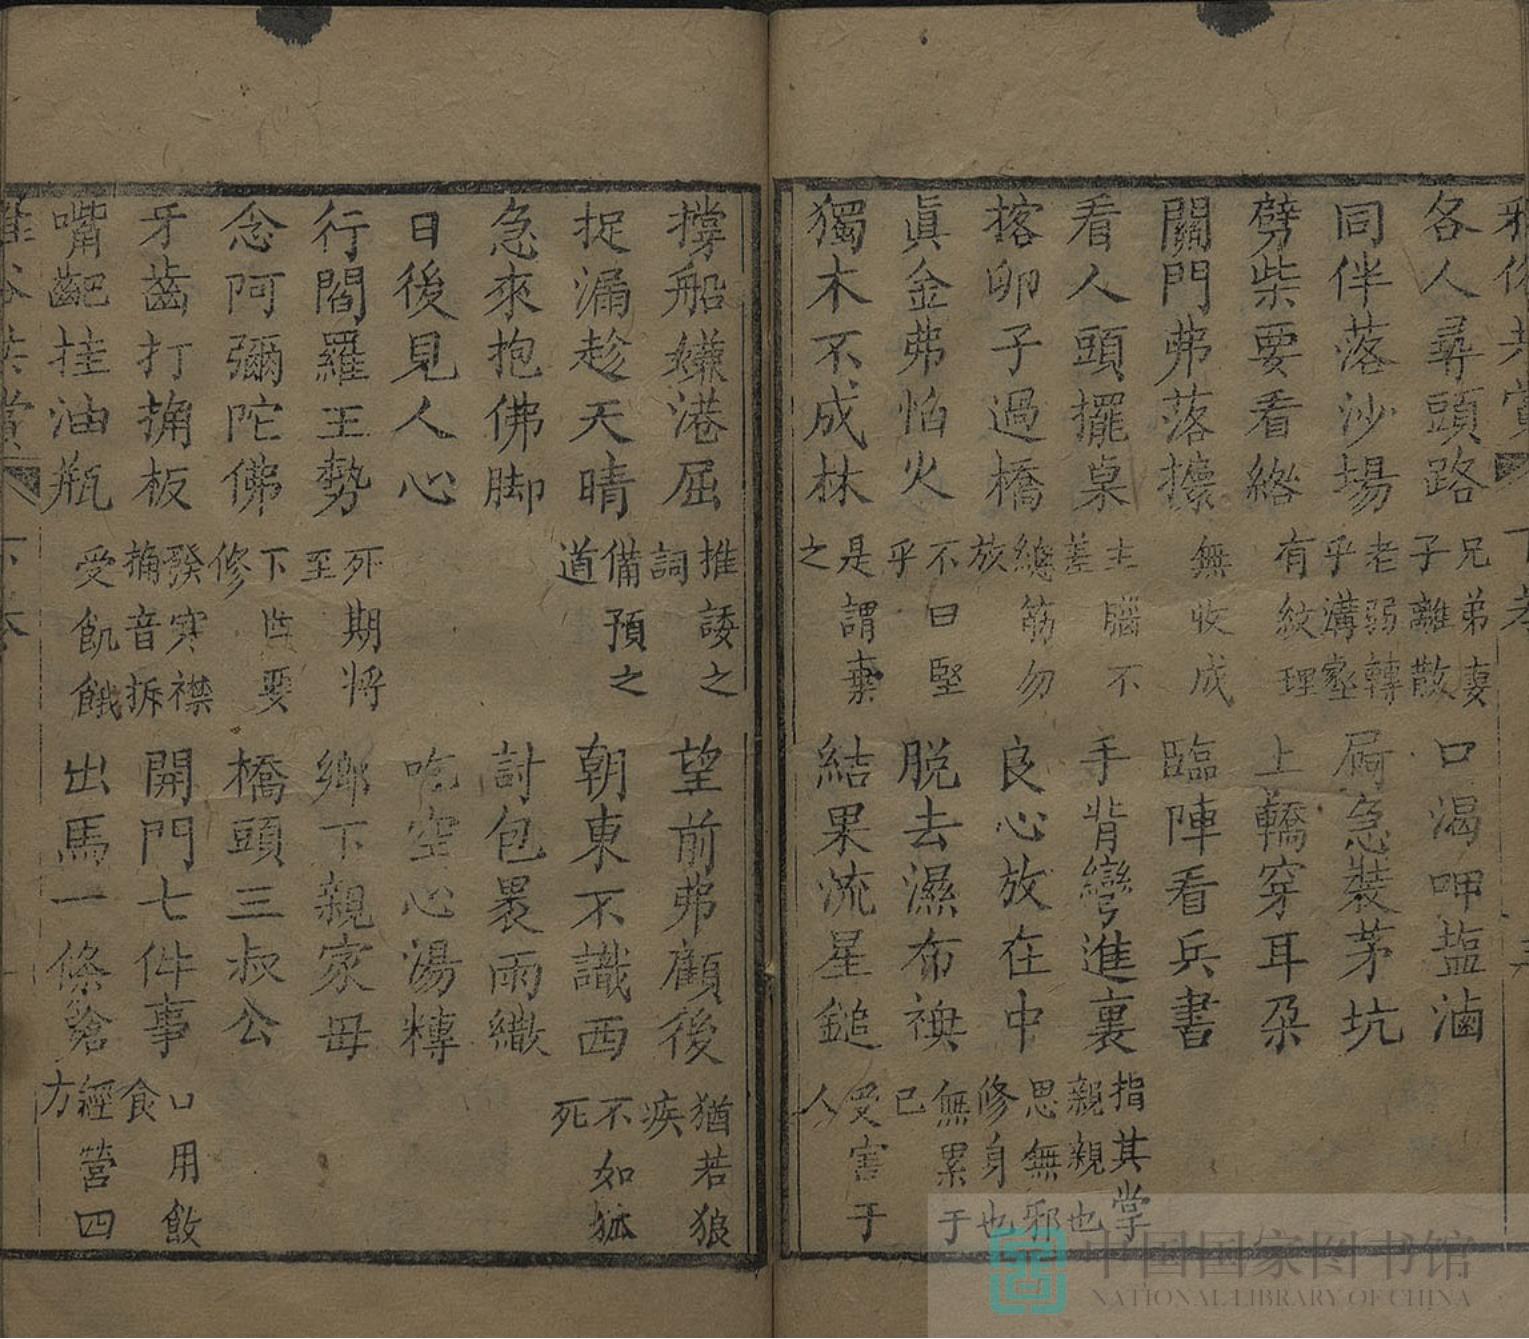 各人尋頭路 兄弟妻子離散 口渴呷盐滷
同伴落沙場 老弱轉乎溝壑 屙急裝茅坑
劈柴要看綹 有紋理 上轎穿耳朵
關門弗落攘 無收成 臨陣看兵書
看人頭擺桌 主腦不差 手背彎進裏 指其掌親親也
揢卵子過橋 總筋勿放 良心放在中 思無邪修身也
眞金弗怕火 不曰堅乎 脱去濕布襖 無累于已
獨木不成林 是謂棄之 結果流星鎚 受害于人
撐船嫌港屈 推諉之詞 望前弗顧後 猶若狼疾
捉漏趁天晴 備預之道 朝東不識西 不如狐死
急來抱佛脚 討包褁雨繖
日後見人心 吃空心湯糰
行閻羅王勢 死期將至 鄉下親家毋
念阿彌陀佛 下 要修 橋頭三叔公
牙齒打捔板 發寒襟捔音拆 開門七件事 口用飲食
嘴齙挂油瓶 受飢餓 出馬一條鎗 經營四方
下卷
中国国家图书馆
NATIONAL LIBRARY OF CHINA